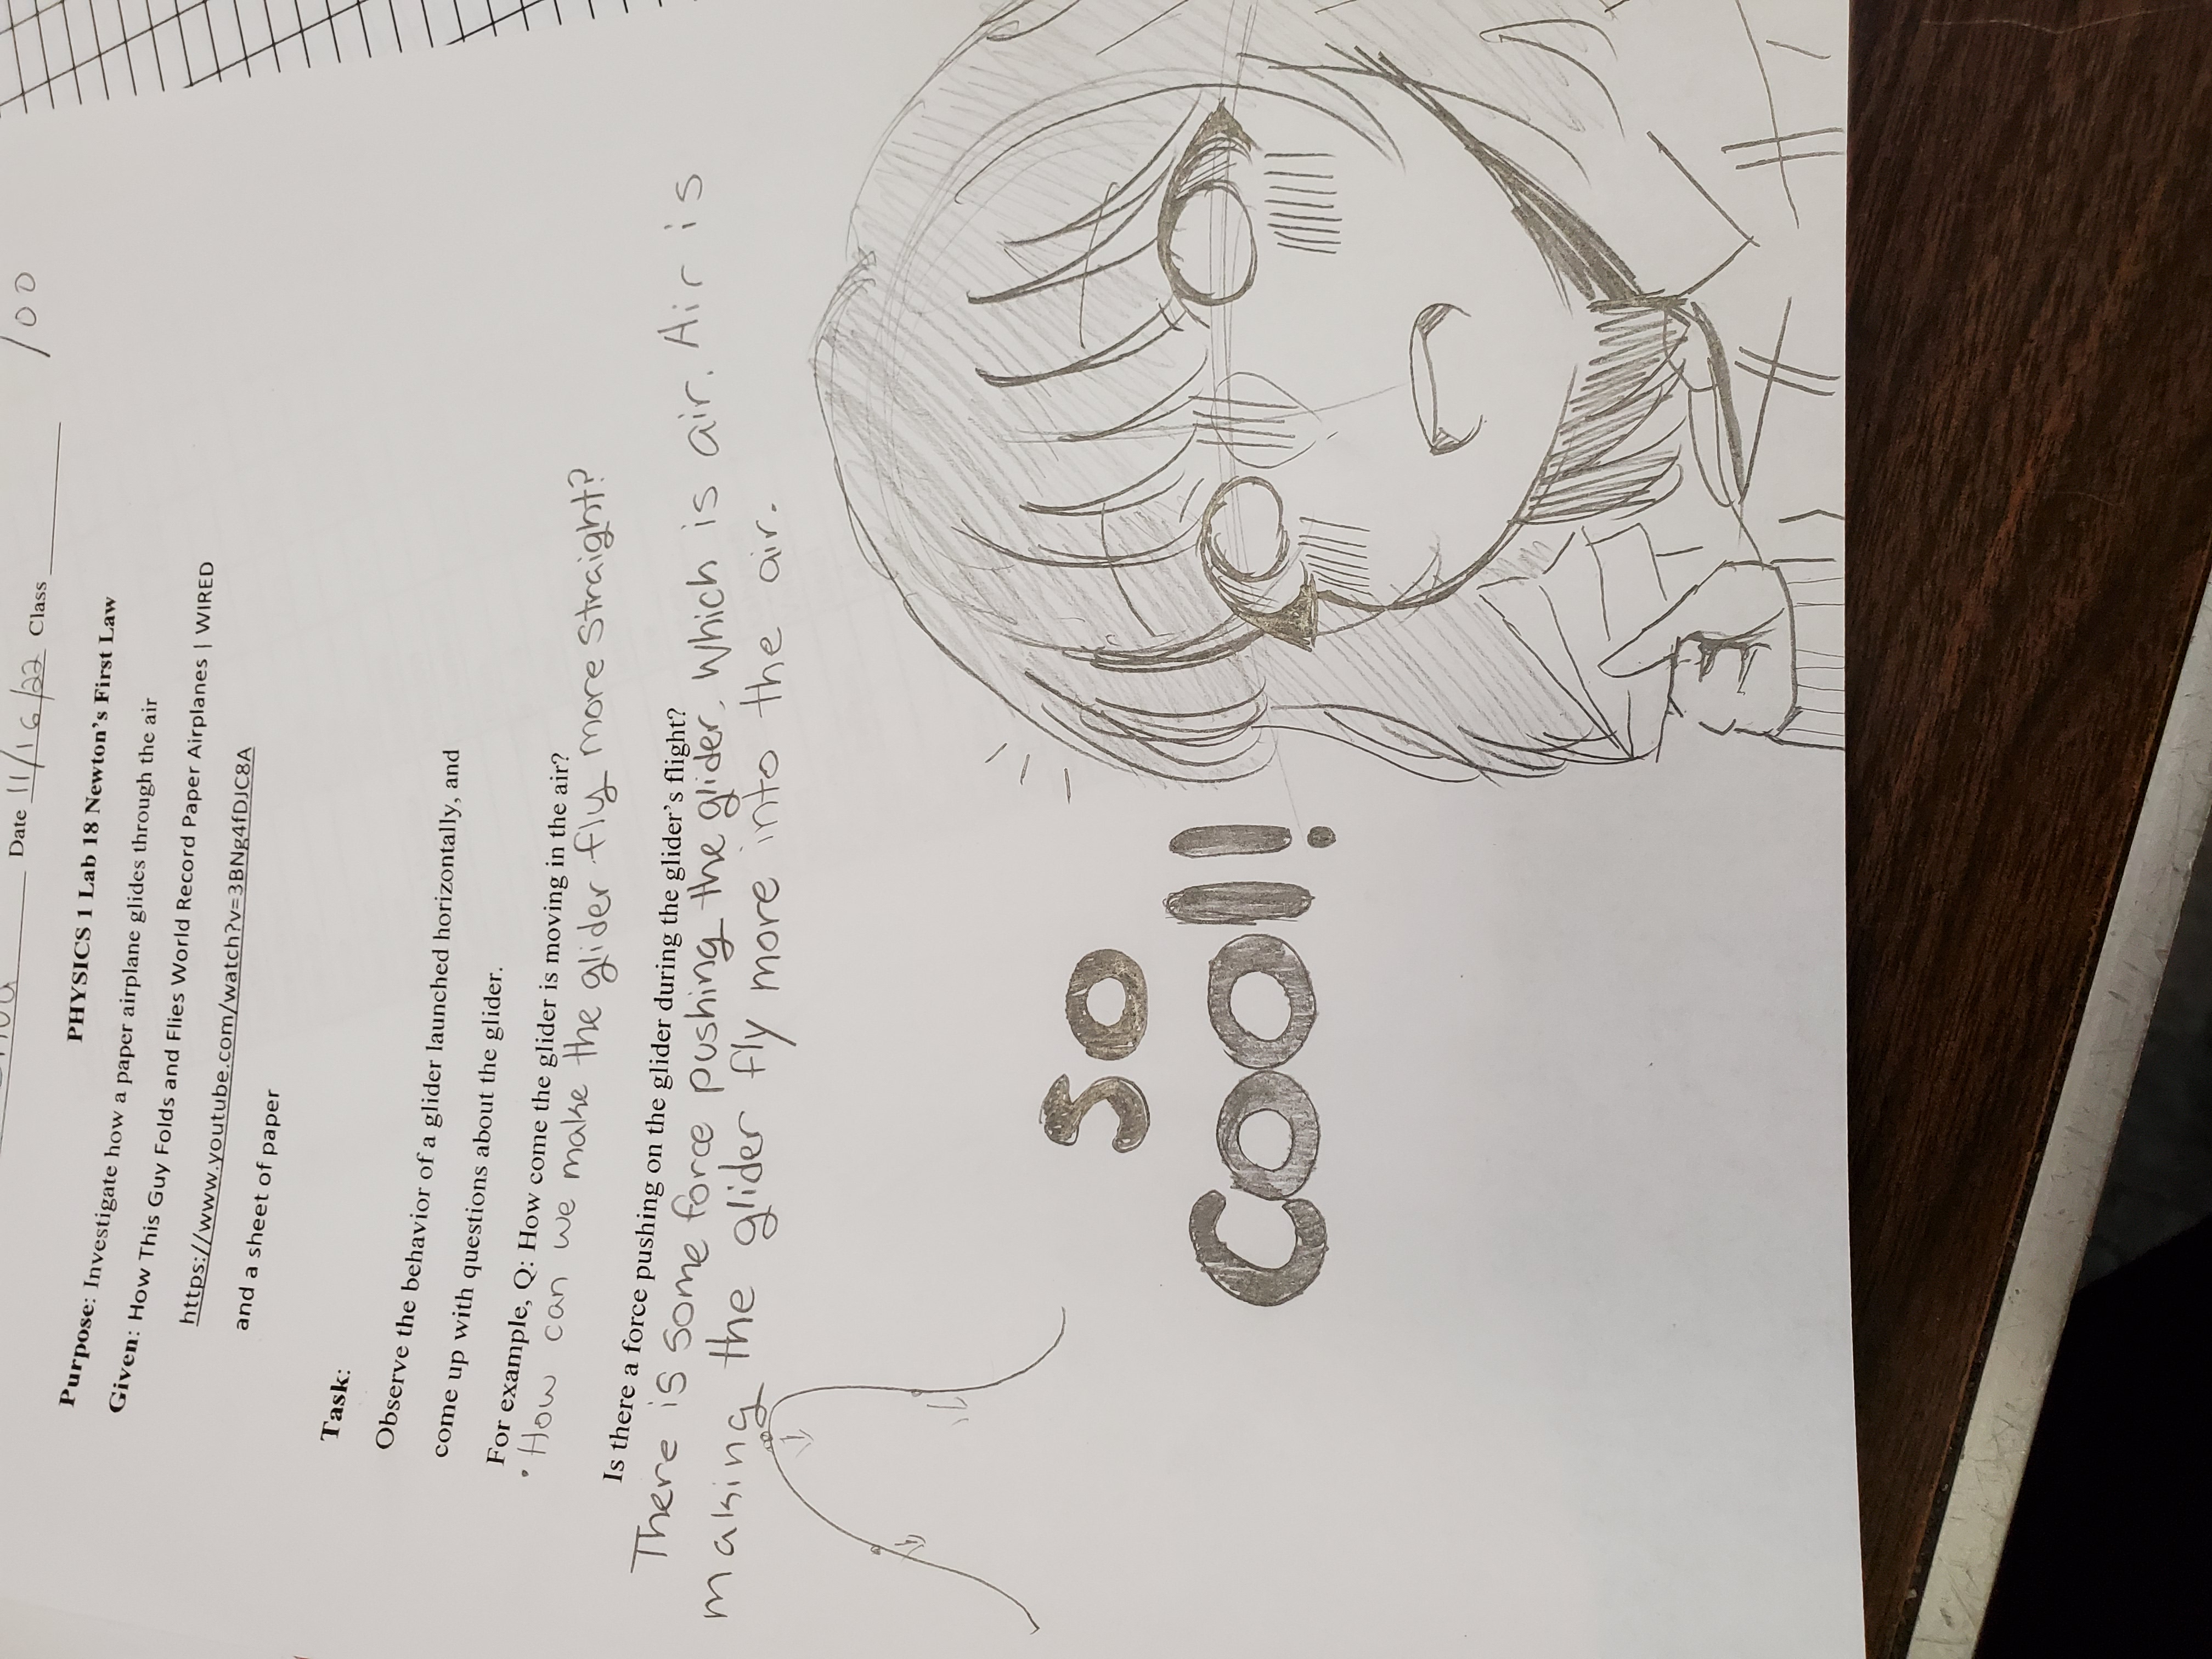 Date 11/16/22 Class 100
PHYSICS 1 Lab 18 Newton's First Law
Purpose: Investigate how a paper airplane glides through the air
Given: How This Guy Folds and Flies World Record Paper Airplanes | WIRED
https://www.youtube.com/watch?v=3BNg4fDJC8A
and a sheet of paper
Task:
Observe the behavior of a glider launched horizontally, and
come up with questions about the glider.
For example, Q: How come the glider is moving in the air?
• How can we make the glider fly more straight?
Is there a force pushing on the glider during the glider's flight?
There is some force pushing the glider. Which is air. Air is
making the glider fly more into the air.
SO
COOl!